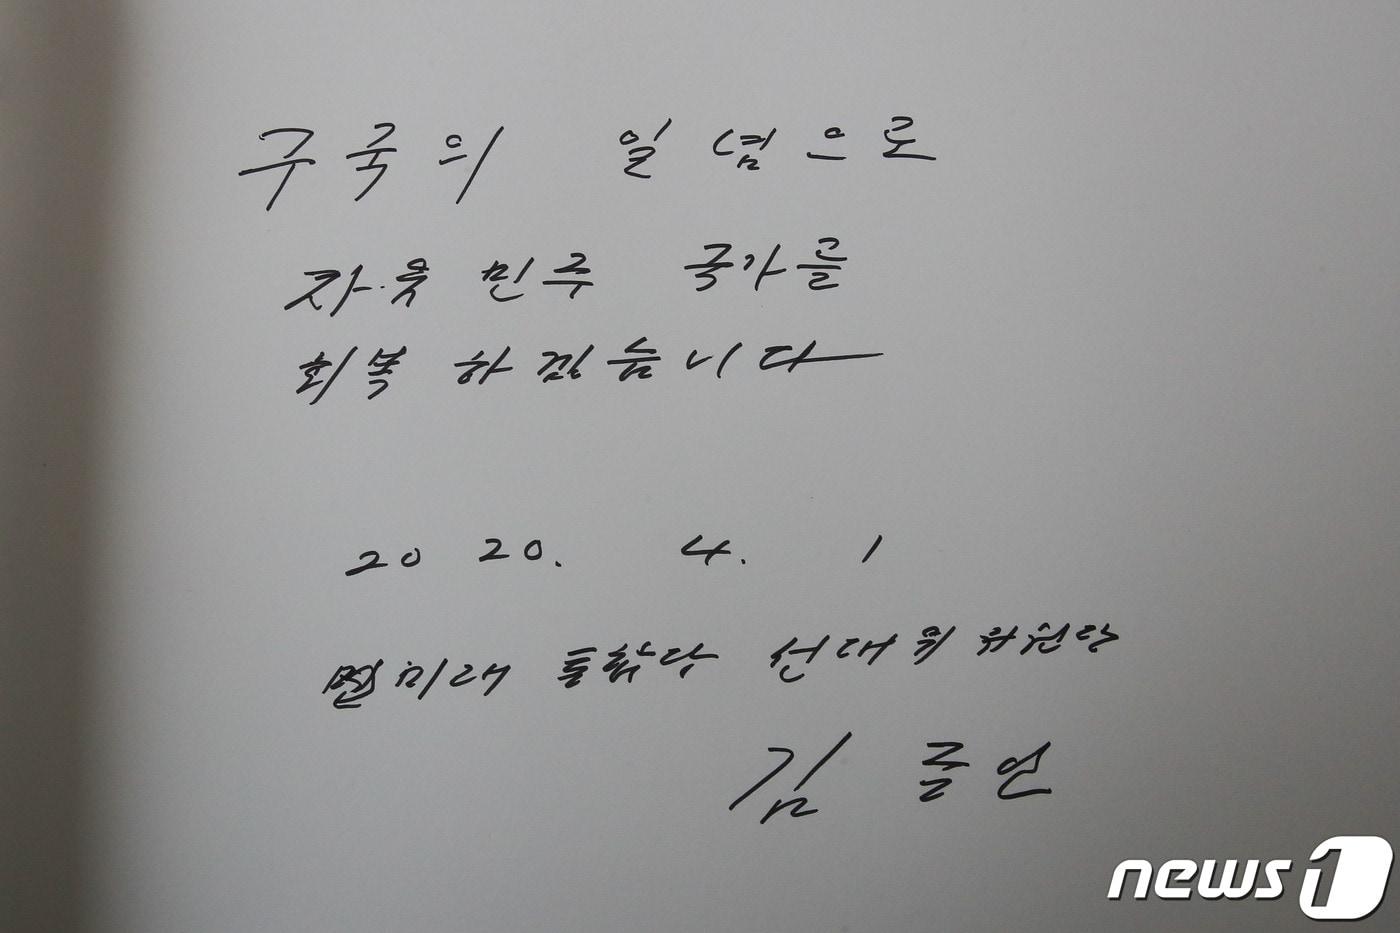 구국의 일념으로
자유 민주 국가를
회복 하겠습니다
2020. 4. 1
미래 통합당 선대위 위원장
김 종인
news1